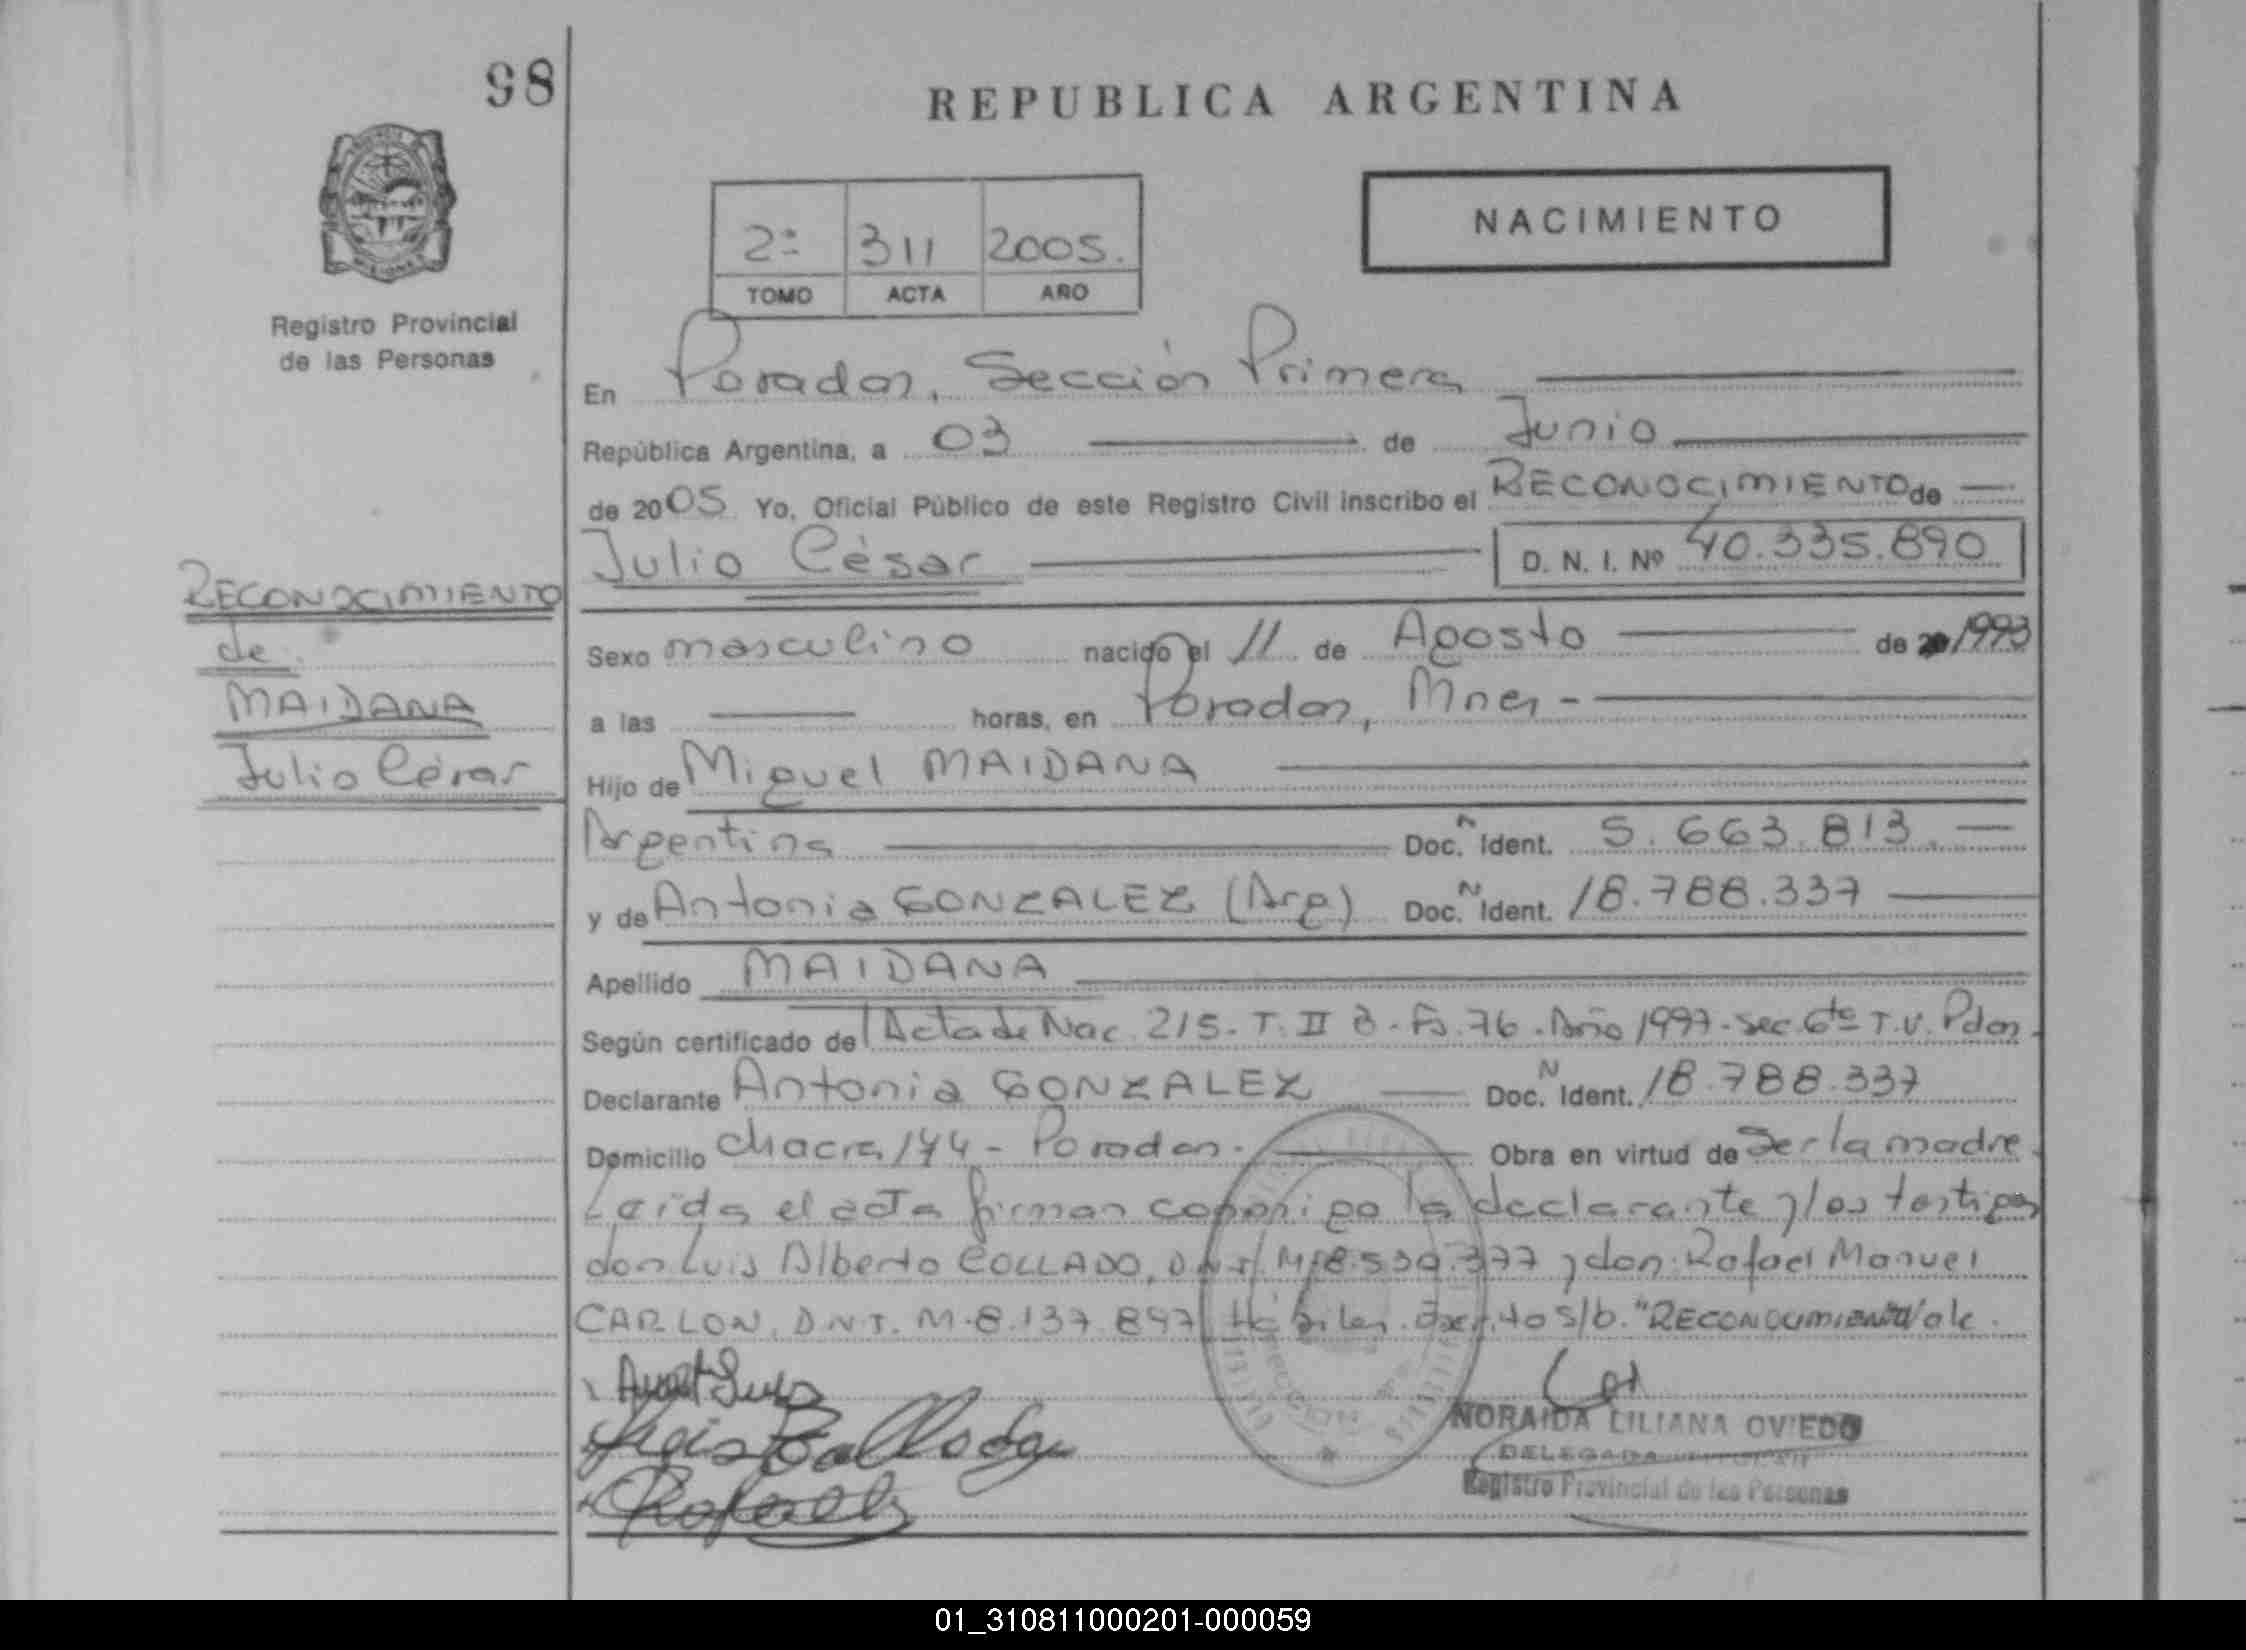 98
REPUBLICA ARGENTINA
2º 311 2005.
TOMO ACTA AÑO
NACIMIENTO
Registro Provincial
de las Personas
En Posadas, Sección Primera
República Argentina, a 03 de Junio
de 2005 Yo, Oficial Público de este Registro Civil inscribo el RECONOCIMIENTO de
Julio César D. N. I. Nº 40.335.890
RECONOCIMIENTO
de
MAIDANA
Julio César
Sexo masculino nacido el 11 de Agosto de 1993
a las horas, en Posadas, Mnes -
Hijo de Miguel MAIDANA
Argentina Doc. N Ident. 5.663.813.
y de Antonia GONZALEZ (Arg) Doc. N Ident. 18.788.337
Apellido MAIDANA
Según certificado de Acta de Nac. 215 - T. II - Fº 76 - Año 1997 - Sec. 6ta T.V. Pdas.
Declarante Antonia GONZALEZ Doc. N Ident. 18.788.337
Domicilio Chacra 144 - Posadas - Obra en virtud de Ser la madre.
Leída el acta firman conmigo la declarante y los testigos
don Luis Alberto COLLADO, D.N.I. M. 8.530.377 y don Rafael Manuel
CARLON, D.N.I. M. 8.137.897 Hábiles. Escrito s/b. "RECONOCIMIENTO" Vale.
NORAIDA LILIANA OVIEDO
DELEGADA TITULAR
Registro Provincial de las Personas
01_310811000201-000059